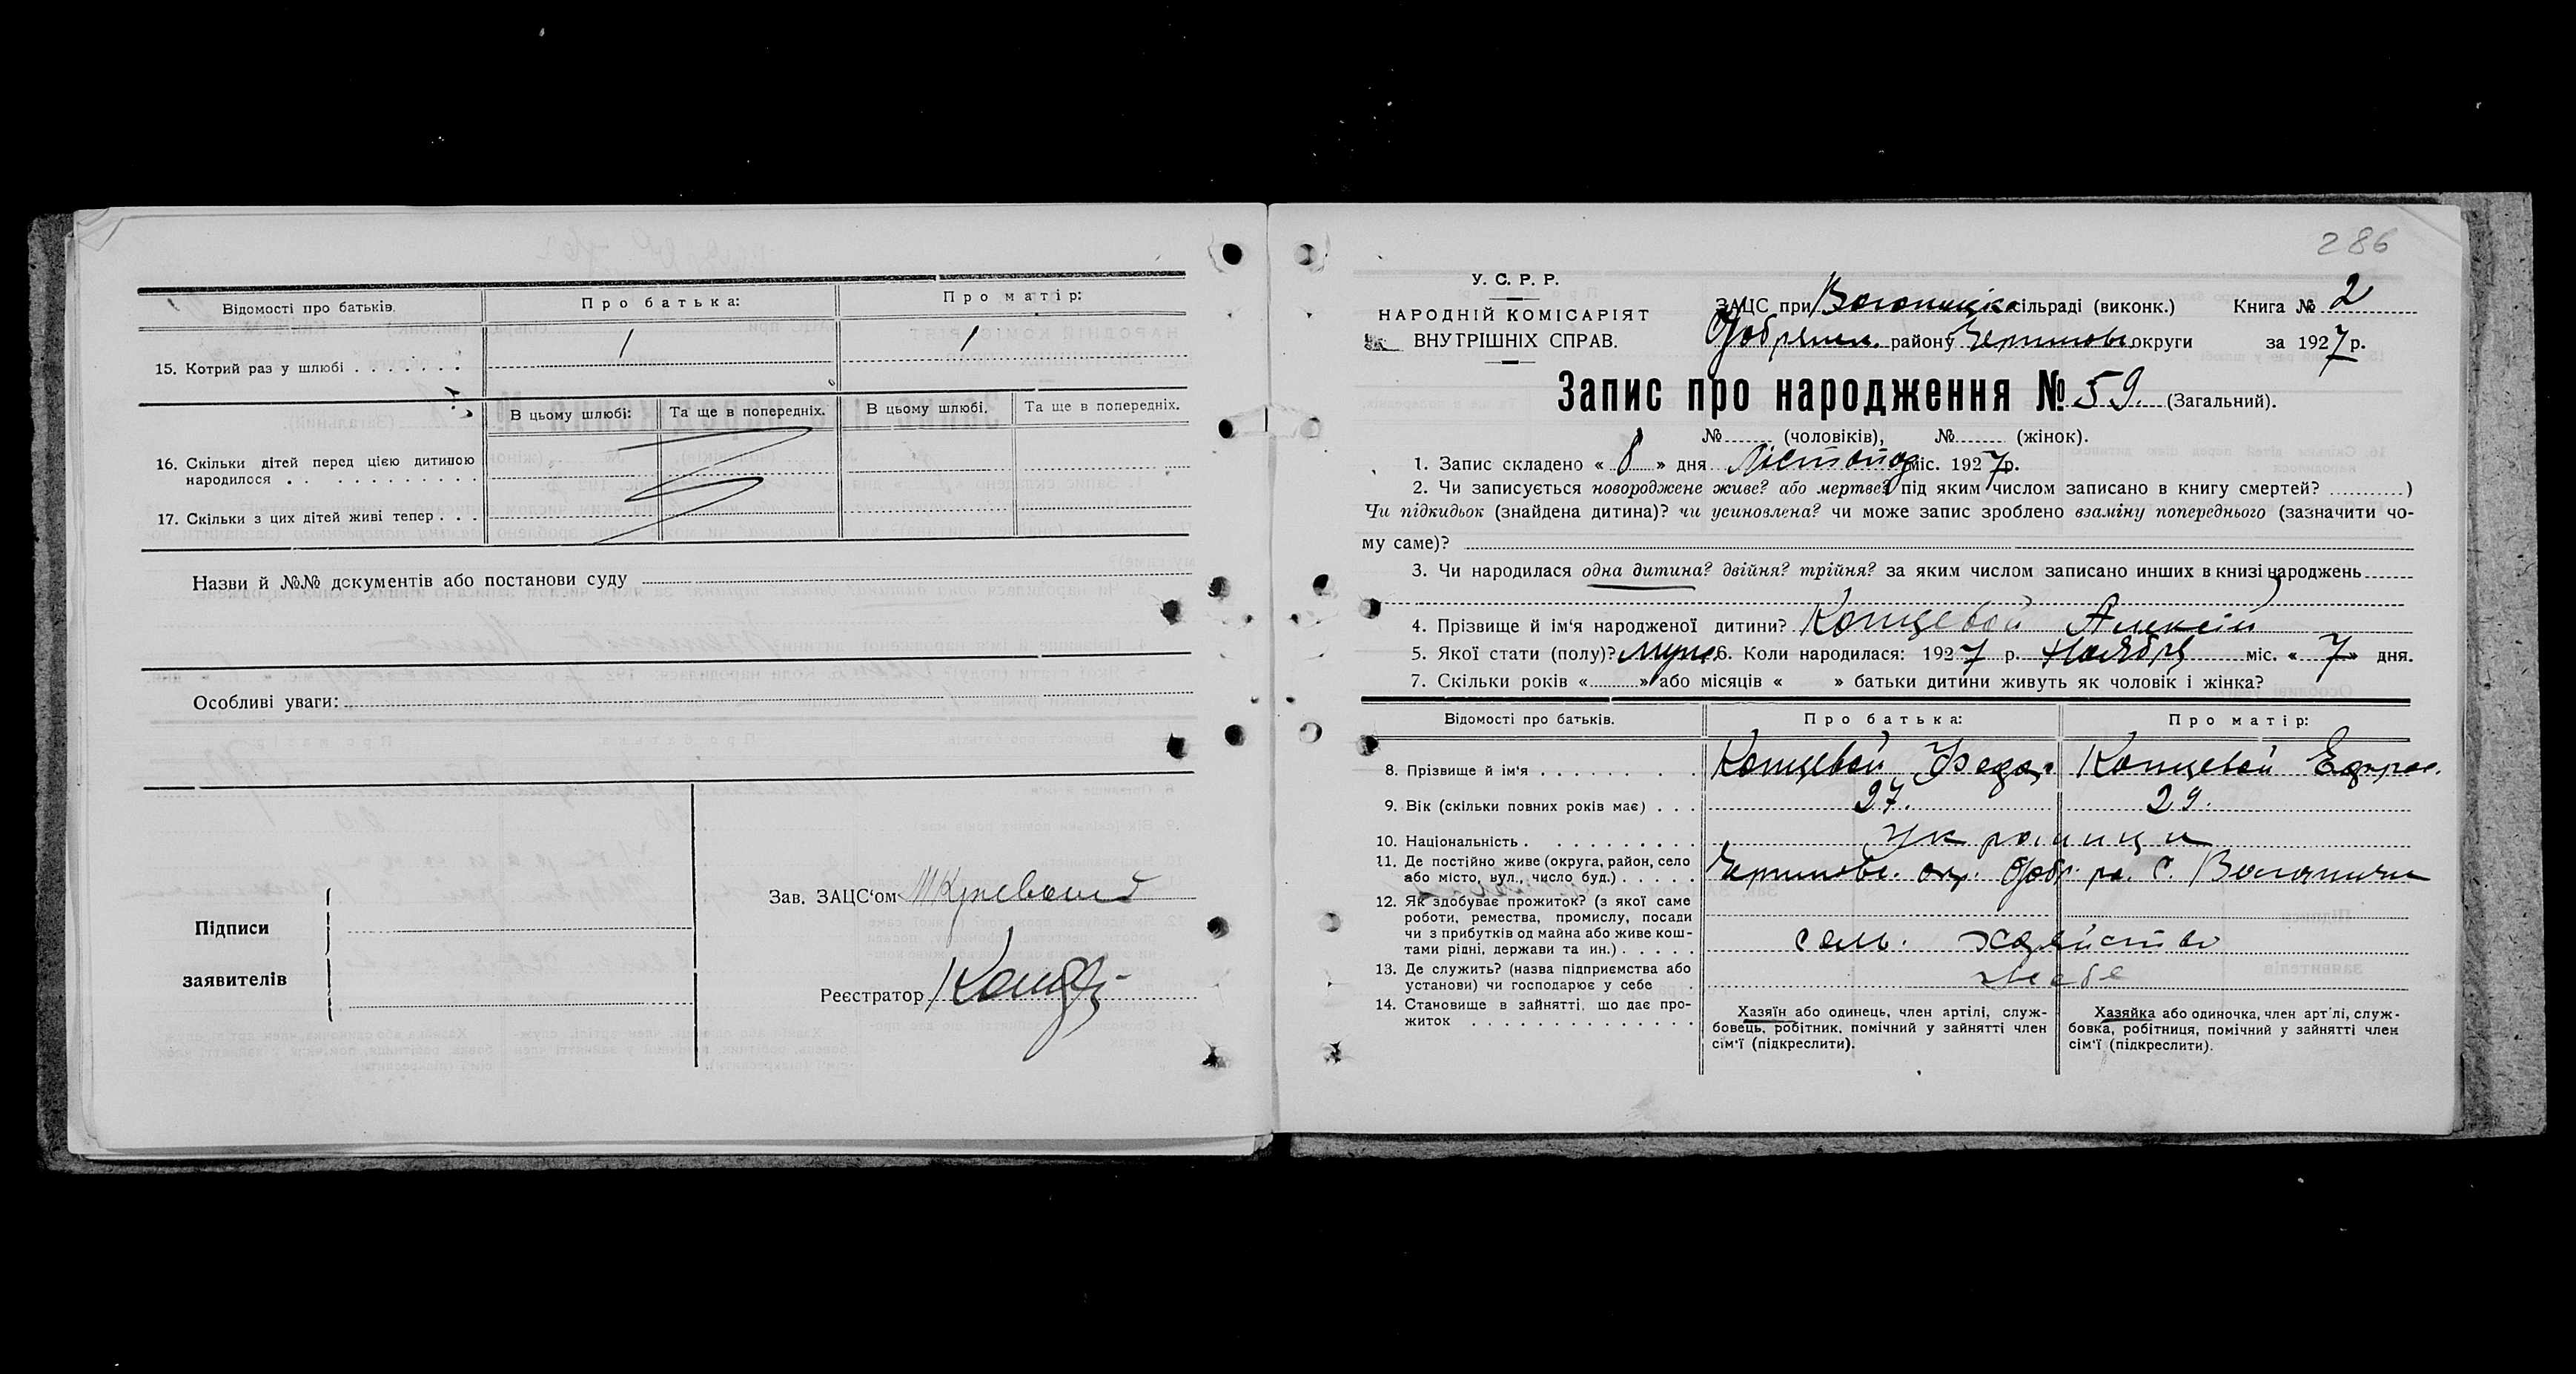 Відомості про батьків. Про батька: Про матір:
15. Котрий раз у шлюбі . . . . . . . 1 1
В цьому шлюбі: Та ще в попередніх. В цьому шлюбі. Та ще в попередніх.
16. Скільки дітей перед цією дитиною
народилося . . . . . . . . . . .
17. Скільки з цих дітей живі тепер . . .
Назви й №№ документів або постанови суду
Особливі уваги:
Підписи
заявителів
Зав. ЗАЦС‘ом
Реєстратор
286
У. С. Р. Р.
НАРОДНІЙ КОМІСАРІЯТ
ВНУТРІШНІХ СПРАВ.
ЗАЦС при сільраді (виконк.) Книга № 2
району округи за 1927 р.
Запис про народження № 59. (Загальний).
№ (чоловіків), № (жінок).
1. Запис складено « 8 » дня Лістопад міс. 1927 р.
2. Чи записується новороджене живе? або мертве? під яким числом записано в книгу смертей? )
Чи підкидьок (знайдена дитина)? чи усиновлена? чи може запис зроблено взаміну попереднього (зазначити чо-
му саме)?
3. Чи народилася одна дитина? двійня? трійня? за яким числом записано инших в книзі народжень
4. Прізвище й ім‘я народженої дитини? Концевой Алексій
5. Якої стати (полу)? муж. 6. Коли народилася: 1927 р. Ноября міс. « 7 » дня.
7. Скільки років « » або місяців « » батьки дитини живуть як чоловік і жінка?
Відомості про батьків. Про батька: Про матір:
8. Прізвище й ім‘я . . . . . . . . . Концевой Федор Концевой Ефрос.
9. Вік (скільки повних років має) . . . 27. 29.
10. Національність . . . . . . . . . . украинци
11. Де постійно живе (округа, район, село
або місто, вул., число буд.) . . . . .
12. Як здобуває прожиток? (з якої саме
роботи, ремества, промислу, посади
чи з прибутків од майна або живе кош-
тами рідні, держави та ин.) . . . . . сель. хозяйство
13. Де служить? (назва підприємства або
установи) чи господарює у себе . у себе
14. Становище в зайнятті, що дає про-
житок . . . . . . . . . . . . . .
Хазяїн або одинець, член артілі, служ-
бовець, робітник, помічний у зайнятті член
сім‘ї (підкреслити).
Хазяйка або одиночка, член арт‘лі, служ-
бовка, робітниця, помічний у зайнятті член
сім‘ї (підкреслити).